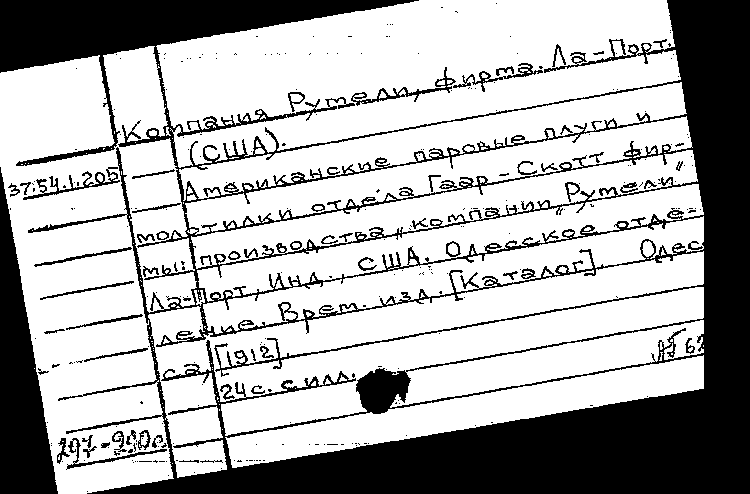 Компания Рутели, фирта. Ла-Порт.
(США).
37:54.1.205
Американские паровые плуги и
молотилки отдела Гаар-Скотт фир-
мы: производства „компании „Рутели"
Ла-Порт, Инд., США. Одесское отде-
ление. Врем. изд. [Каталог]. Одес
са, [1912].
24 с. с илл.
АБ 62
297-900